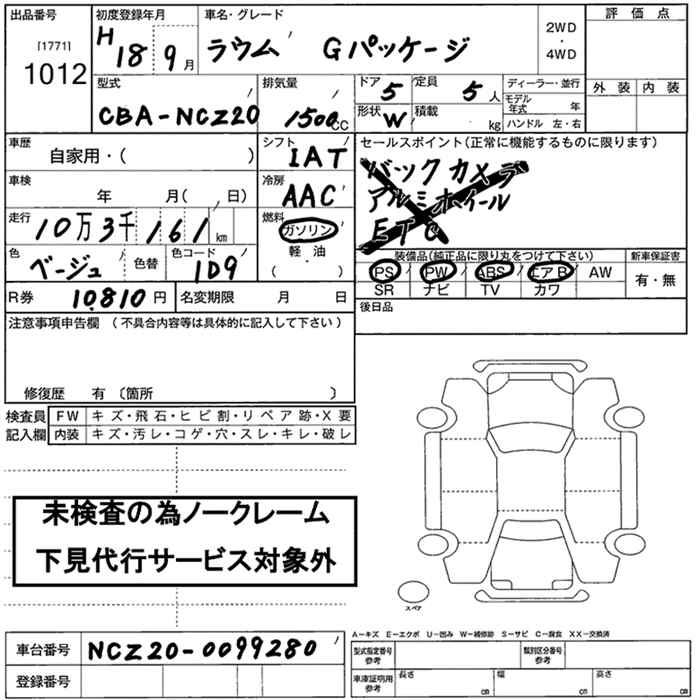 出品番号 初度登録年月 車名・グレード 評価点
[1771] 1012 H18 9月 ラウム Gパッケージ 2WD・4WD
外装 内装
型式 排気量 ドア 5 定員 5人 ディーラー・並行
CBA-NCZ20 1500cc 形状 W 積載 kg モデル年式 年
ハンドル 左・右
車歴 シフト セールスポイント(正常に機能するものに限ります)
自家用・( ) IAT バックカメラ
車検 冷房 アルミホイール
年 月( 日) AAC ETC
走行 10万3千161km 燃料 ガソリン
軽・油
( )
色 ベージュ 色替 色コード 1D9
装備品(純正品に限り丸をつけて下さい) 新車保証書
PS PW ABS エアB AW 有・無
SR ナビ TV カワ
R券 10810円 名変期限 月 日 後日品
注意事項申告欄(不具合内容等は具体的に記入して下さい)
修復歴 有〔箇所 〕
検査員 FW キズ・飛石・ヒビ割・リペア跡・X要
記入欄 内装 キズ・汚レ・コゲ・穴・スレ・キレ・破レ
未検査の為ノークレーム
下見代行サービス対象外
スペア
A-キズ E-エクボ U-凹み W-補修跡 S-サビ C-腐食 XX-交換済
車台番号 NCZ20-0099280
型式指定番号 参考 類別区分番号 参考
登録番号
車庫証明用 参考 長さ cm 幅 cm 高さ cm